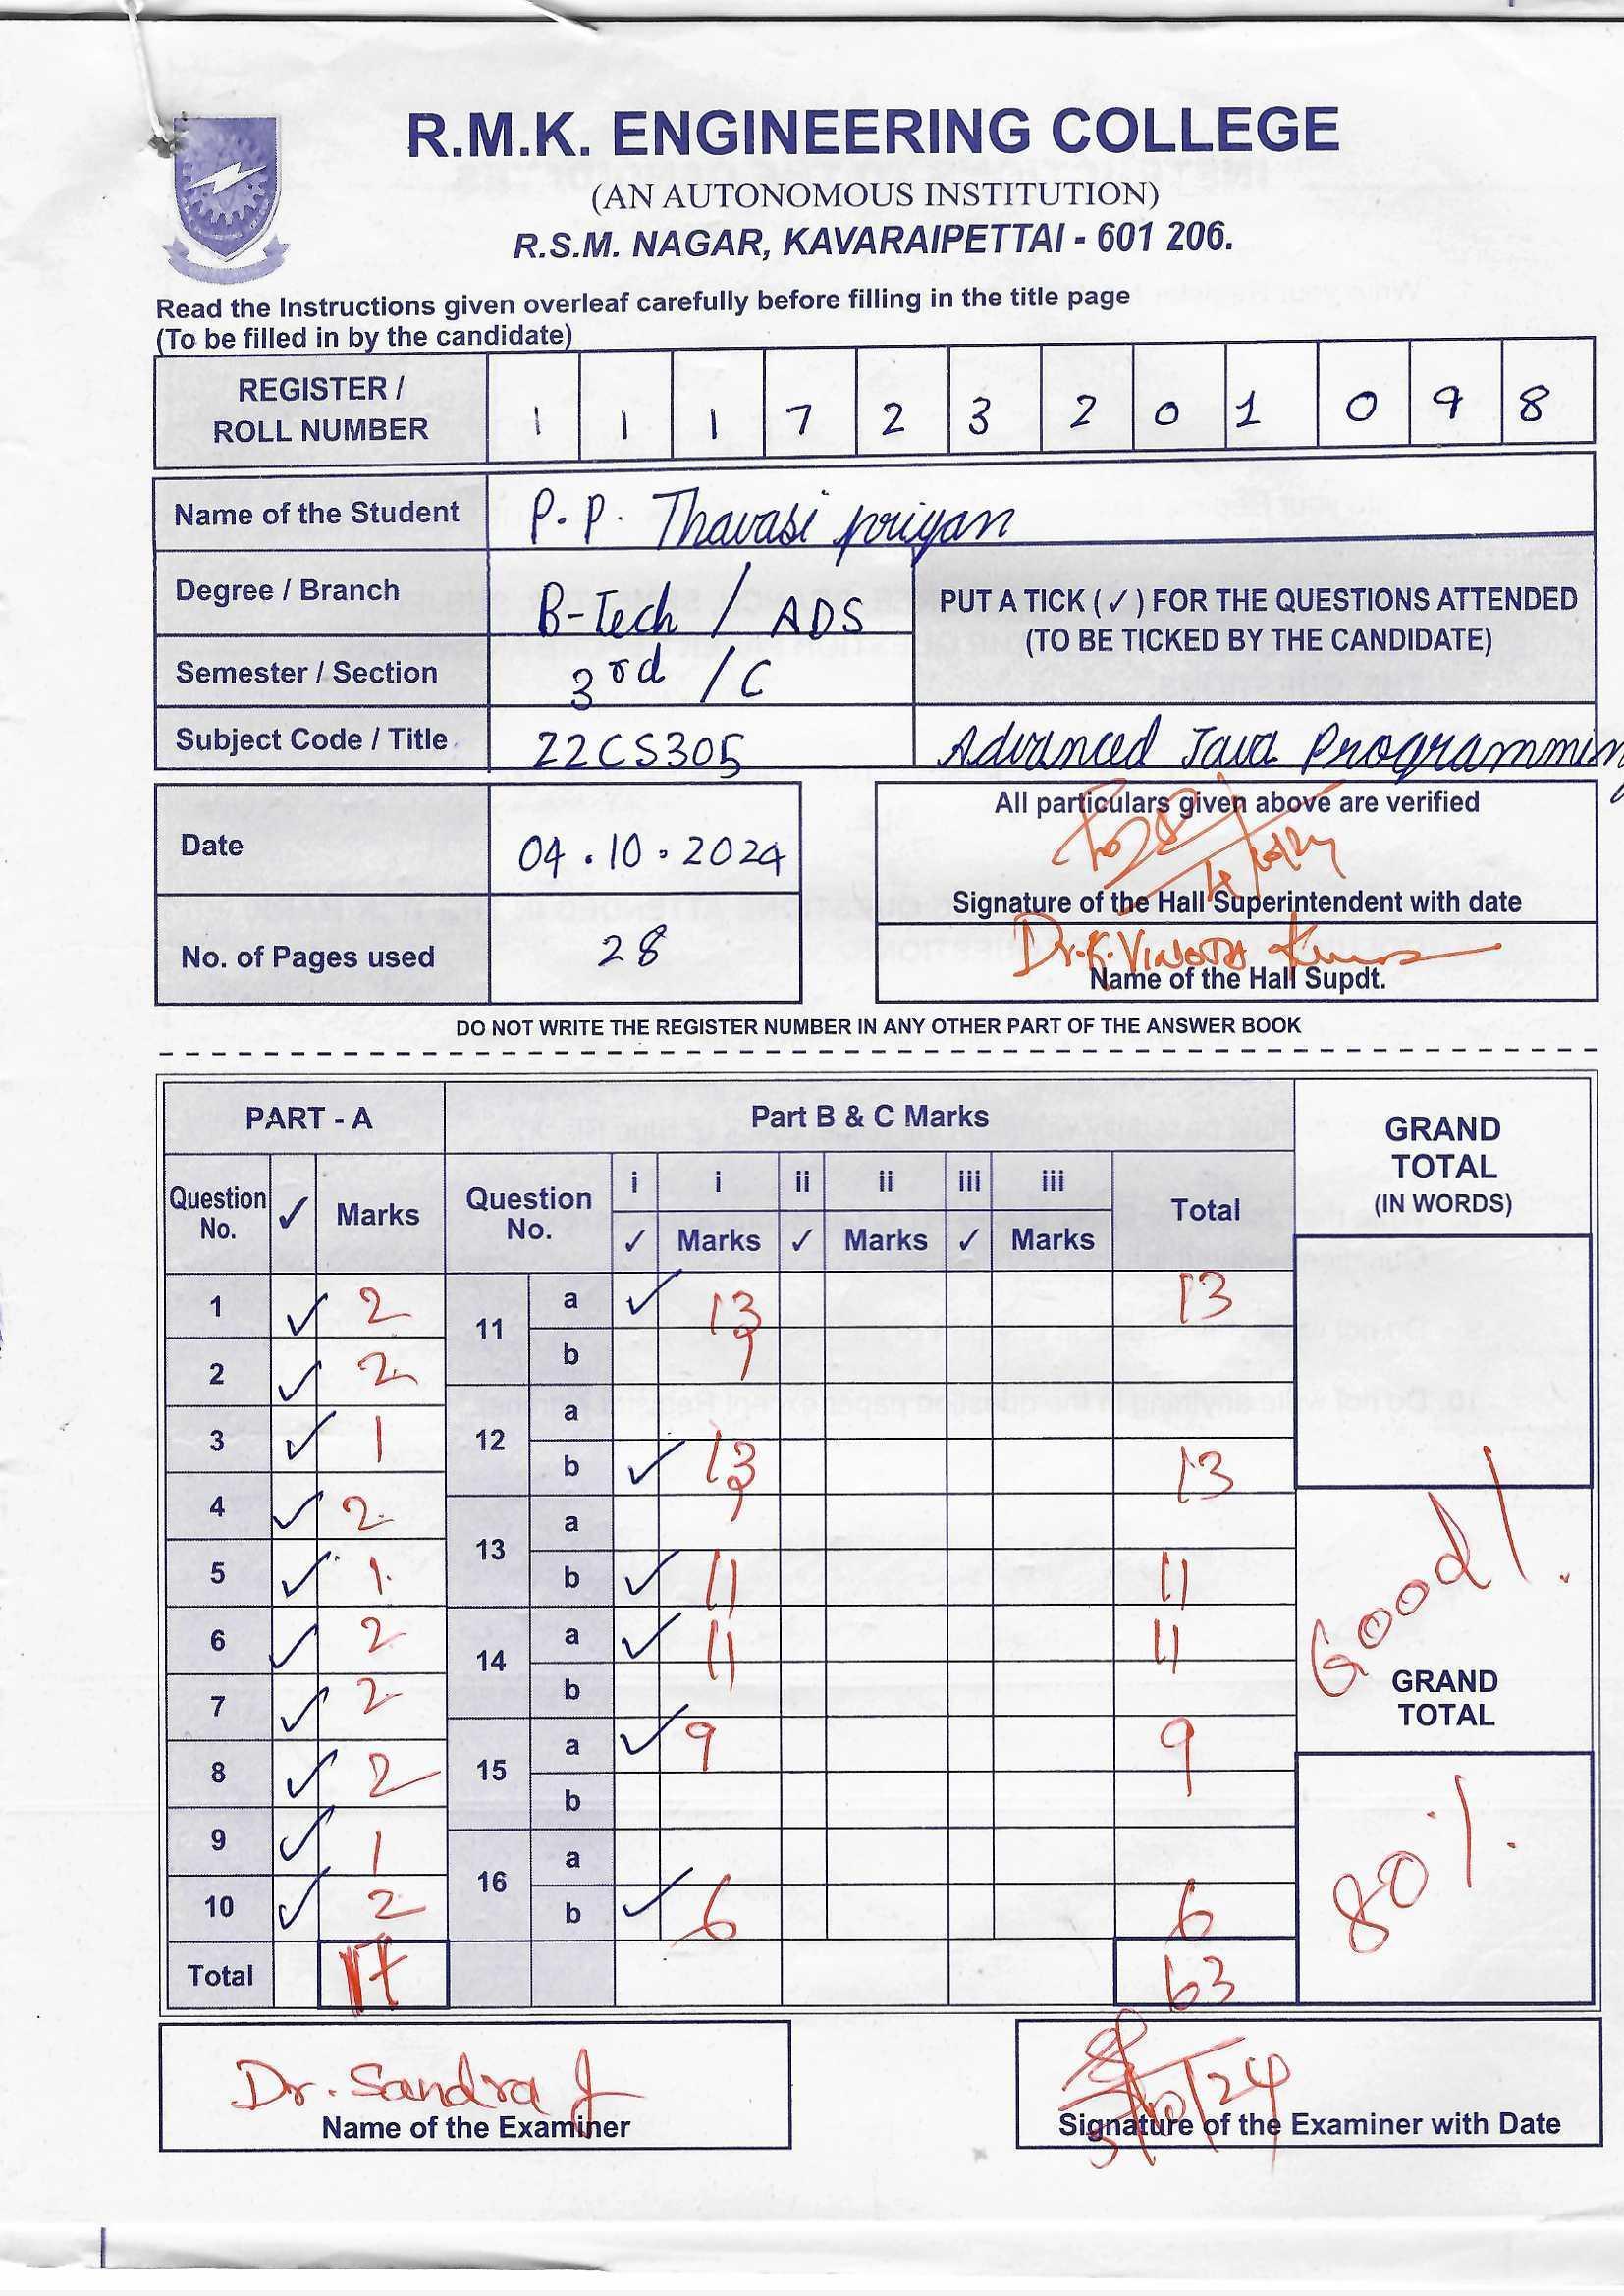 R.M.K. ENGINEERING COLLEGE
(AN AUTONOMOUS INSTITUTION)
R.S.M. NAGAR, KAVARAIPETTAI - 601 206.
Read the Instructions given overleaf carefully before filling in the title page
(To be filled in by the candidate)
REGISTER /
ROLL NUMBER 1 1 1 7 2 3 2 0 1 0 9 8
Name of the Student P.P. Thavasi priyan
Degree / Branch B-Tech / ADS
PUT A TICK ( ✓ ) FOR THE QUESTIONS ATTENDED
(TO BE TICKED BY THE CANDIDATE)
Semester / Section 3rd / C
Subject Code / Title 22CS305 Advanced Java Programming
Date 04.10.2024
All particulars given above are verified
Signature of the Hall Superintendent with date
No. of Pages used 28
Dr.K.
Name of the Hall Supdt.
DO NOT WRITE THE REGISTER NUMBER IN ANY OTHER PART OF THE ANSWER BOOK
PART - A Part B & C Marks GRAND
TOTAL
(IN WORDS)
Question No. ✓ Marks Question No. i i ii ii iii iii Total
✓ Marks ✓ Marks ✓ Marks
1 ✓ 2 11 a ✓ 13 13
2 ✓ 2 b
3 ✓ 1 12 a
b ✓ 13 13
4 ✓ 2 13 a
5 ✓ 1 b ✓ 11 11
Good!
6 ✓ 2 14 a ✓ 11 11
7 ✓ 2 b
GRAND
TOTAL
8 ✓ 2 15 a ✓ 9 9
b
9 ✓ 1 16 a
10 ✓ 2 b ✓ 6 6
80%
Total 17 63
Dr. Sandra J
Name of the Examiner
5/10/24
Signature of the Examiner with Date